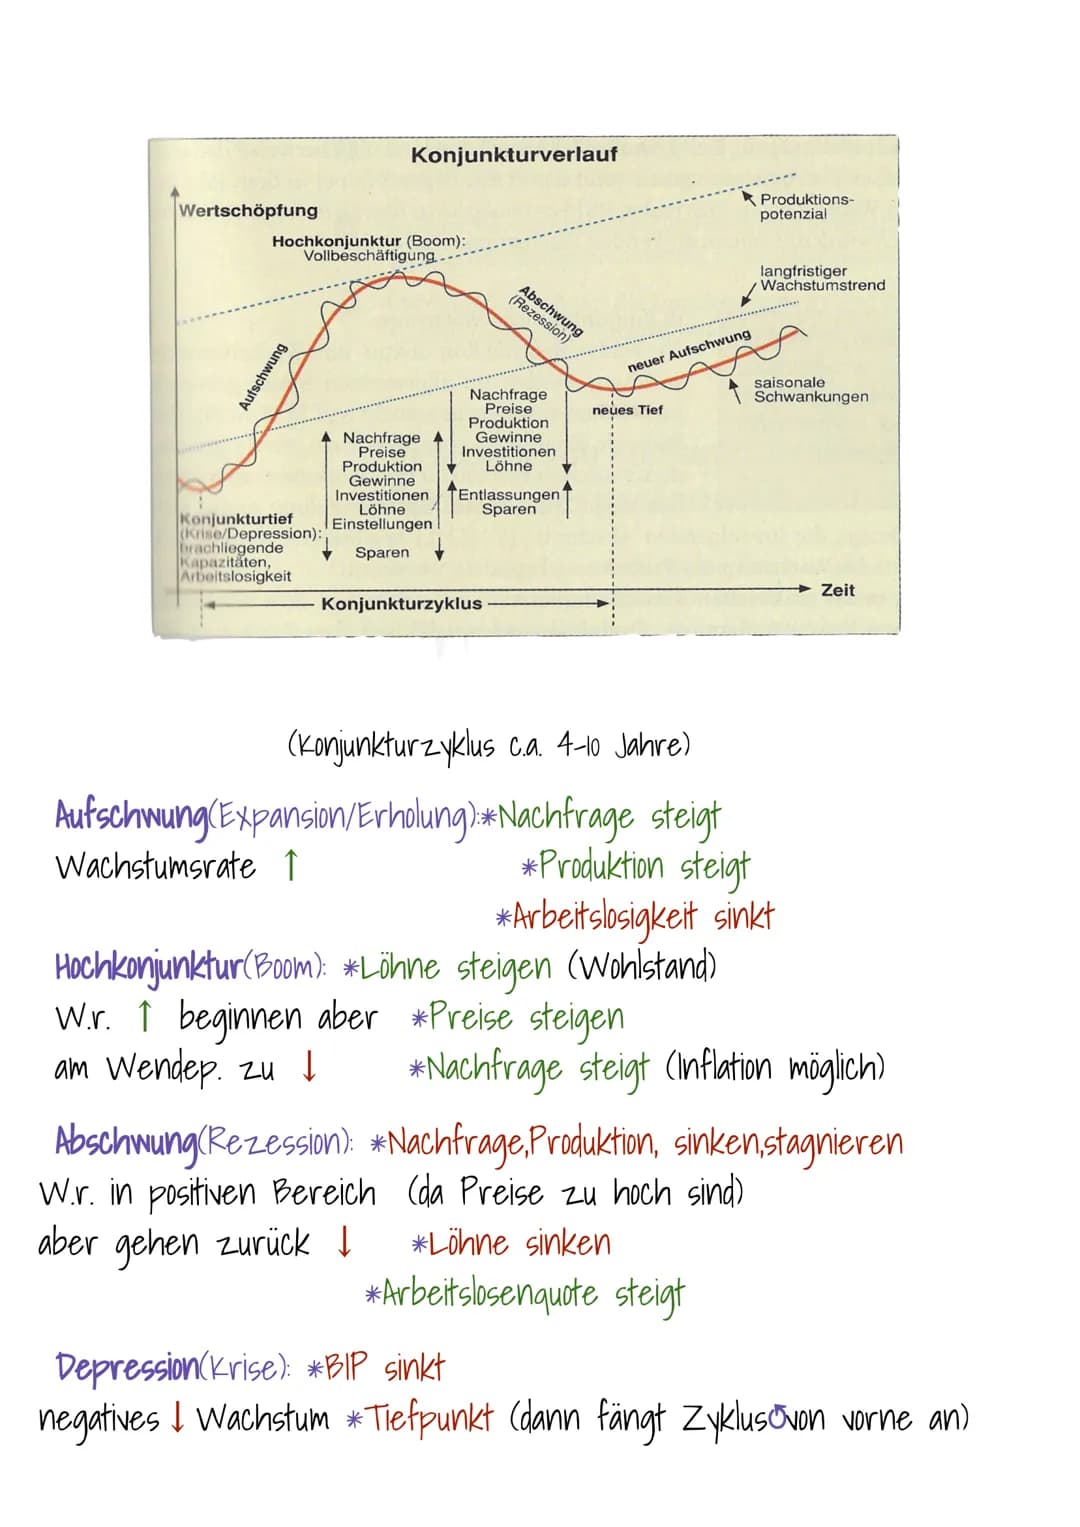 Konjunkturverlauf
Wertschöpfung
Produktions-
potenzial
Hochkonjunktur (Boom):
Vollbeschäftigung
langfristiger
Wachstumstrend
Abschwung
(Rezession)
Aufschwung
neuer Aufschwung
saisonale
Schwankungen
neues Tief
Nachfrage
Preise
Produktion
Gewinne
Investitionen
Löhne
Entlassungen
Sparen
Nachfrage
Preise
Produktion
Gewinne
Investitionen
Löhne
Einstellungen
Sparen
Konjunkturtief
(Krise/Depression):
brachliegende
Kapazitäten,
Arbeitslosigkeit
Zeit
Konjunkturzyklus
(Konjunkturzyklus c.a. 4-10 Jahre)
Aufschwung(Expansion/Erholung):*Nachfrage steigt
Wachstumsrate ↑ *Produktion steigt
*Arbeitslosigkeit sinkt
Hochkonjunktur(Boom): *Löhne steigen (Wohlstand)
W.r. ↑ beginnen aber *Preise steigen
am Wendep. zu ↓ *Nachfrage steigt (Inflation möglich)
Abschwung(Rezession): *Nachfrage,Produktion, sinken,stagnieren
W.r. in positiven Bereich (da Preise zu hoch sind)
aber gehen zurück ↓ *Löhne sinken
*Arbeitslosenquote steigt
Depression(Krise): *BIP sinkt
negatives ↓ Wachstum *Tiefpunkt (dann fängt Zyklus von vorne an)